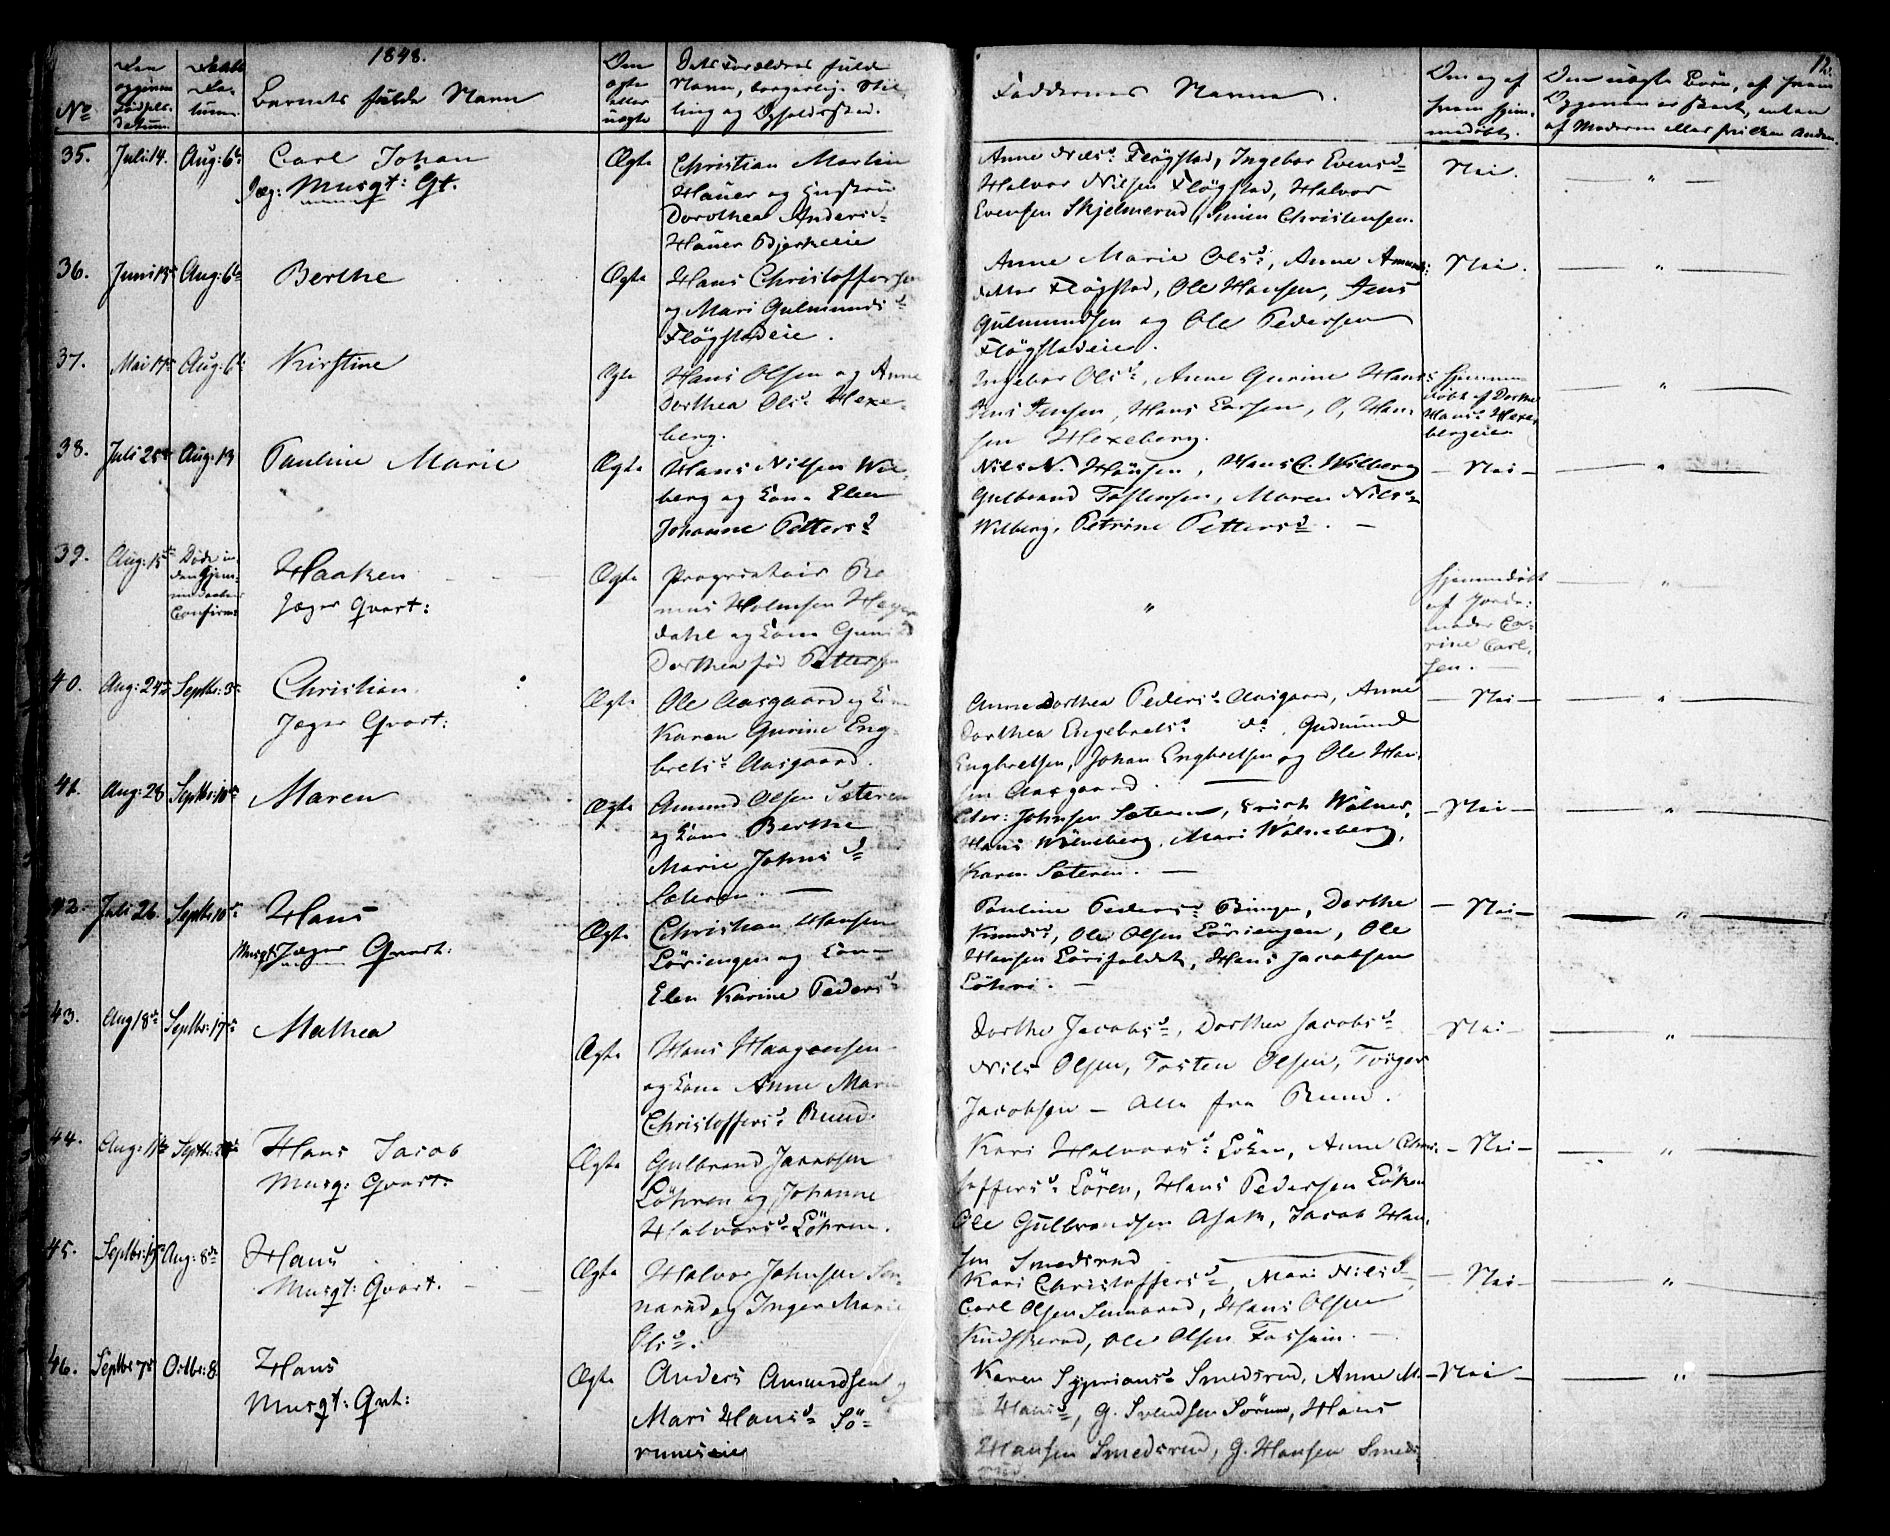 1848.
12.
No
Den opgivne Fødsels-datum.
Daabs Datum.
Barnets fulde Navn
Den ægte eller uægte
Dets Forældres fulde Navn, borgerlig Stilling og Opholdssted.
Faddernes Navne.
Om og af hvem hjemmedøbt.
Om uægte Børn, af hvem Opgaven er skeet, enten af Moderen eller hvilken Anden.
35. Juli 14. Aug: 6te Carl Johan
Jæg: Musqt: Qt.
Ægte
Christian Martin
Hauer og Hustru
Dorothea Andersd
Hauer Bjerkeeie
Anne Nilsd: Fløgstad, Ingebor Evensd
Halvor Nilsen Fløgstad, Halvor
Evensen Skjelmerud, Simen Christensen.
Nei.
36. Juni 13 Aug: 6te Berthe
Ægte
Hans Christoffersen
og Mari Gulmundsd
Fløgstadeie.
Anne Marie Olsd, Anne Amunds:
datter Fløgstad, Ole Hansen, Jens
Gulmundsen og Ole Pedersen
Fløgstadeie.
Nei.
37. Mai 17 Aug: 6te Kirstine
Ægte
Hans Olsen og Anne
Dorthea Olsd Hexe-
berg.
Ingebor Olsd, Anne Gurine Hans
Jens Jensen, Hans Larsen, O, Han-
sen Hexeberg.
Hjemme-
døbt af Dorthe
Hansd Hexe-
bergeie.
38. Juli 25 Aug: 13 Pauline Marie
Ægte
Hans Nilsen Wil-
berg og Kone Elen
Johanne Pettersd
Nils N. Hansen, Hans C. Wilberg
Gulbrand Tostensen, Maren Nilsd
Wilberg, Petrine Pettersd. —
— Nei —
39. Aug: 15 Døde in-
den Hjem-
medaabens
Confirm:
Haaken
Jæger Qvart:
Ægte
Proprietair Ra
mus Holmsen Heyer
dahl og Kone Guni
Dorthea fød Pettersen
"
Hjemmedøbt
af Jorde:
moder Ca-
rine Carl-
sen. —
40. Aug: 24 Septbr: 3 Christian.
Jæger Qvart:
Ægte
Ole Aasgaard og Kone
Karen Gurine Eng-
bretsd Aasgaard.
Anne Dorthea Pedersd Aasgaard, Anne
Dorthea Engebretsd do, Gudmund
Engbretsen, Johan Engbretsen og Ole Han-
sen Aasgaard.
— Nei —
41. Aug: 28 Septbr: 10 Maren
Ægte
Amund Olsen Sæteren
og Kone Berthe
Marie Johnsd
Sæteren. —
Chr: Johnsen Sæteren, Erich Wølner,
Hans Wølneberg, Mari Wølneberg,
Karen Sæteren. —
— Nei —
42. Juli 26. Septbr: 10 Hans
Musqt: Jæger Qvart:
Ægte
Christian Hansen
Løriengen og Kone
Elen Karine Pedersd
Pauline Pedersd Bingen, Dorthe
Knudsd, Ole Olsen Løriengen, Ole
Hansen Lørifaldet, Hans Jacobsen
Løhri. —
— Nei —
43. Aug 18 Septbr: 17 Mathea
Ægte
Hans Haagensen
og Kone Anne Marie
Christoffersd Rund.
Dorthe Jacobsd, Dorthea Jacobsd
Nils Olsen, Tosten Olsen, Torger
Jacobsen — Alle fra Rund.
Nei —
44. Aug: 11 Septbr: 24 Hans Jacob
Musq: Qvart:
Ægte
Gulbrand Jacobsen
Løhren og Johanne
Halvorsd Løhren.
Kari Halvorsd: Løken, Anne Chri-
stoffersd Lören, Hans Pedersen Løken
Ole Gulbrandsen Asak, Jacob Han-
sen Smedsrud
— Nei —
45. Septbr: 19 Aug: 8de Hans
Musqt: Qvart.
Ægte
Halvor Johnsen Sen-
nerud og Inger Marie
Olsd.
Kari Christoffersd, Mari Nilsd,
Carl Olsen Sennerud, Hans Olsen
Kudskerud, Ole Olsen Fossum. —
— Nei —
46. Septbr 7 Octbr: 8 Hans
Musqt: Qvt:
Ægte
Anders Amundsen og
Mari Hansd Sö-
rumseie
Karen Syprians Smedsrud, Anne M.
Hansd, G. Svendsen Sörum, Hans
Hansen Smedsrud, G. Hansen Smeds
rud.
— Nei —